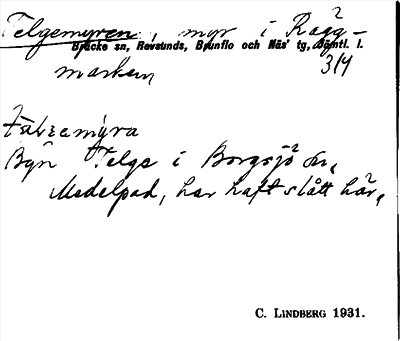 Telgemyren, myr i Ragg-
Bräcke sn, Revsunds, Brunflo och Näs' tg, Jämtl. l.
marken 314
Byn Telge i Borgsjö sn,
Medelpad, har haft slått här.
C. LINDBERG 1931.